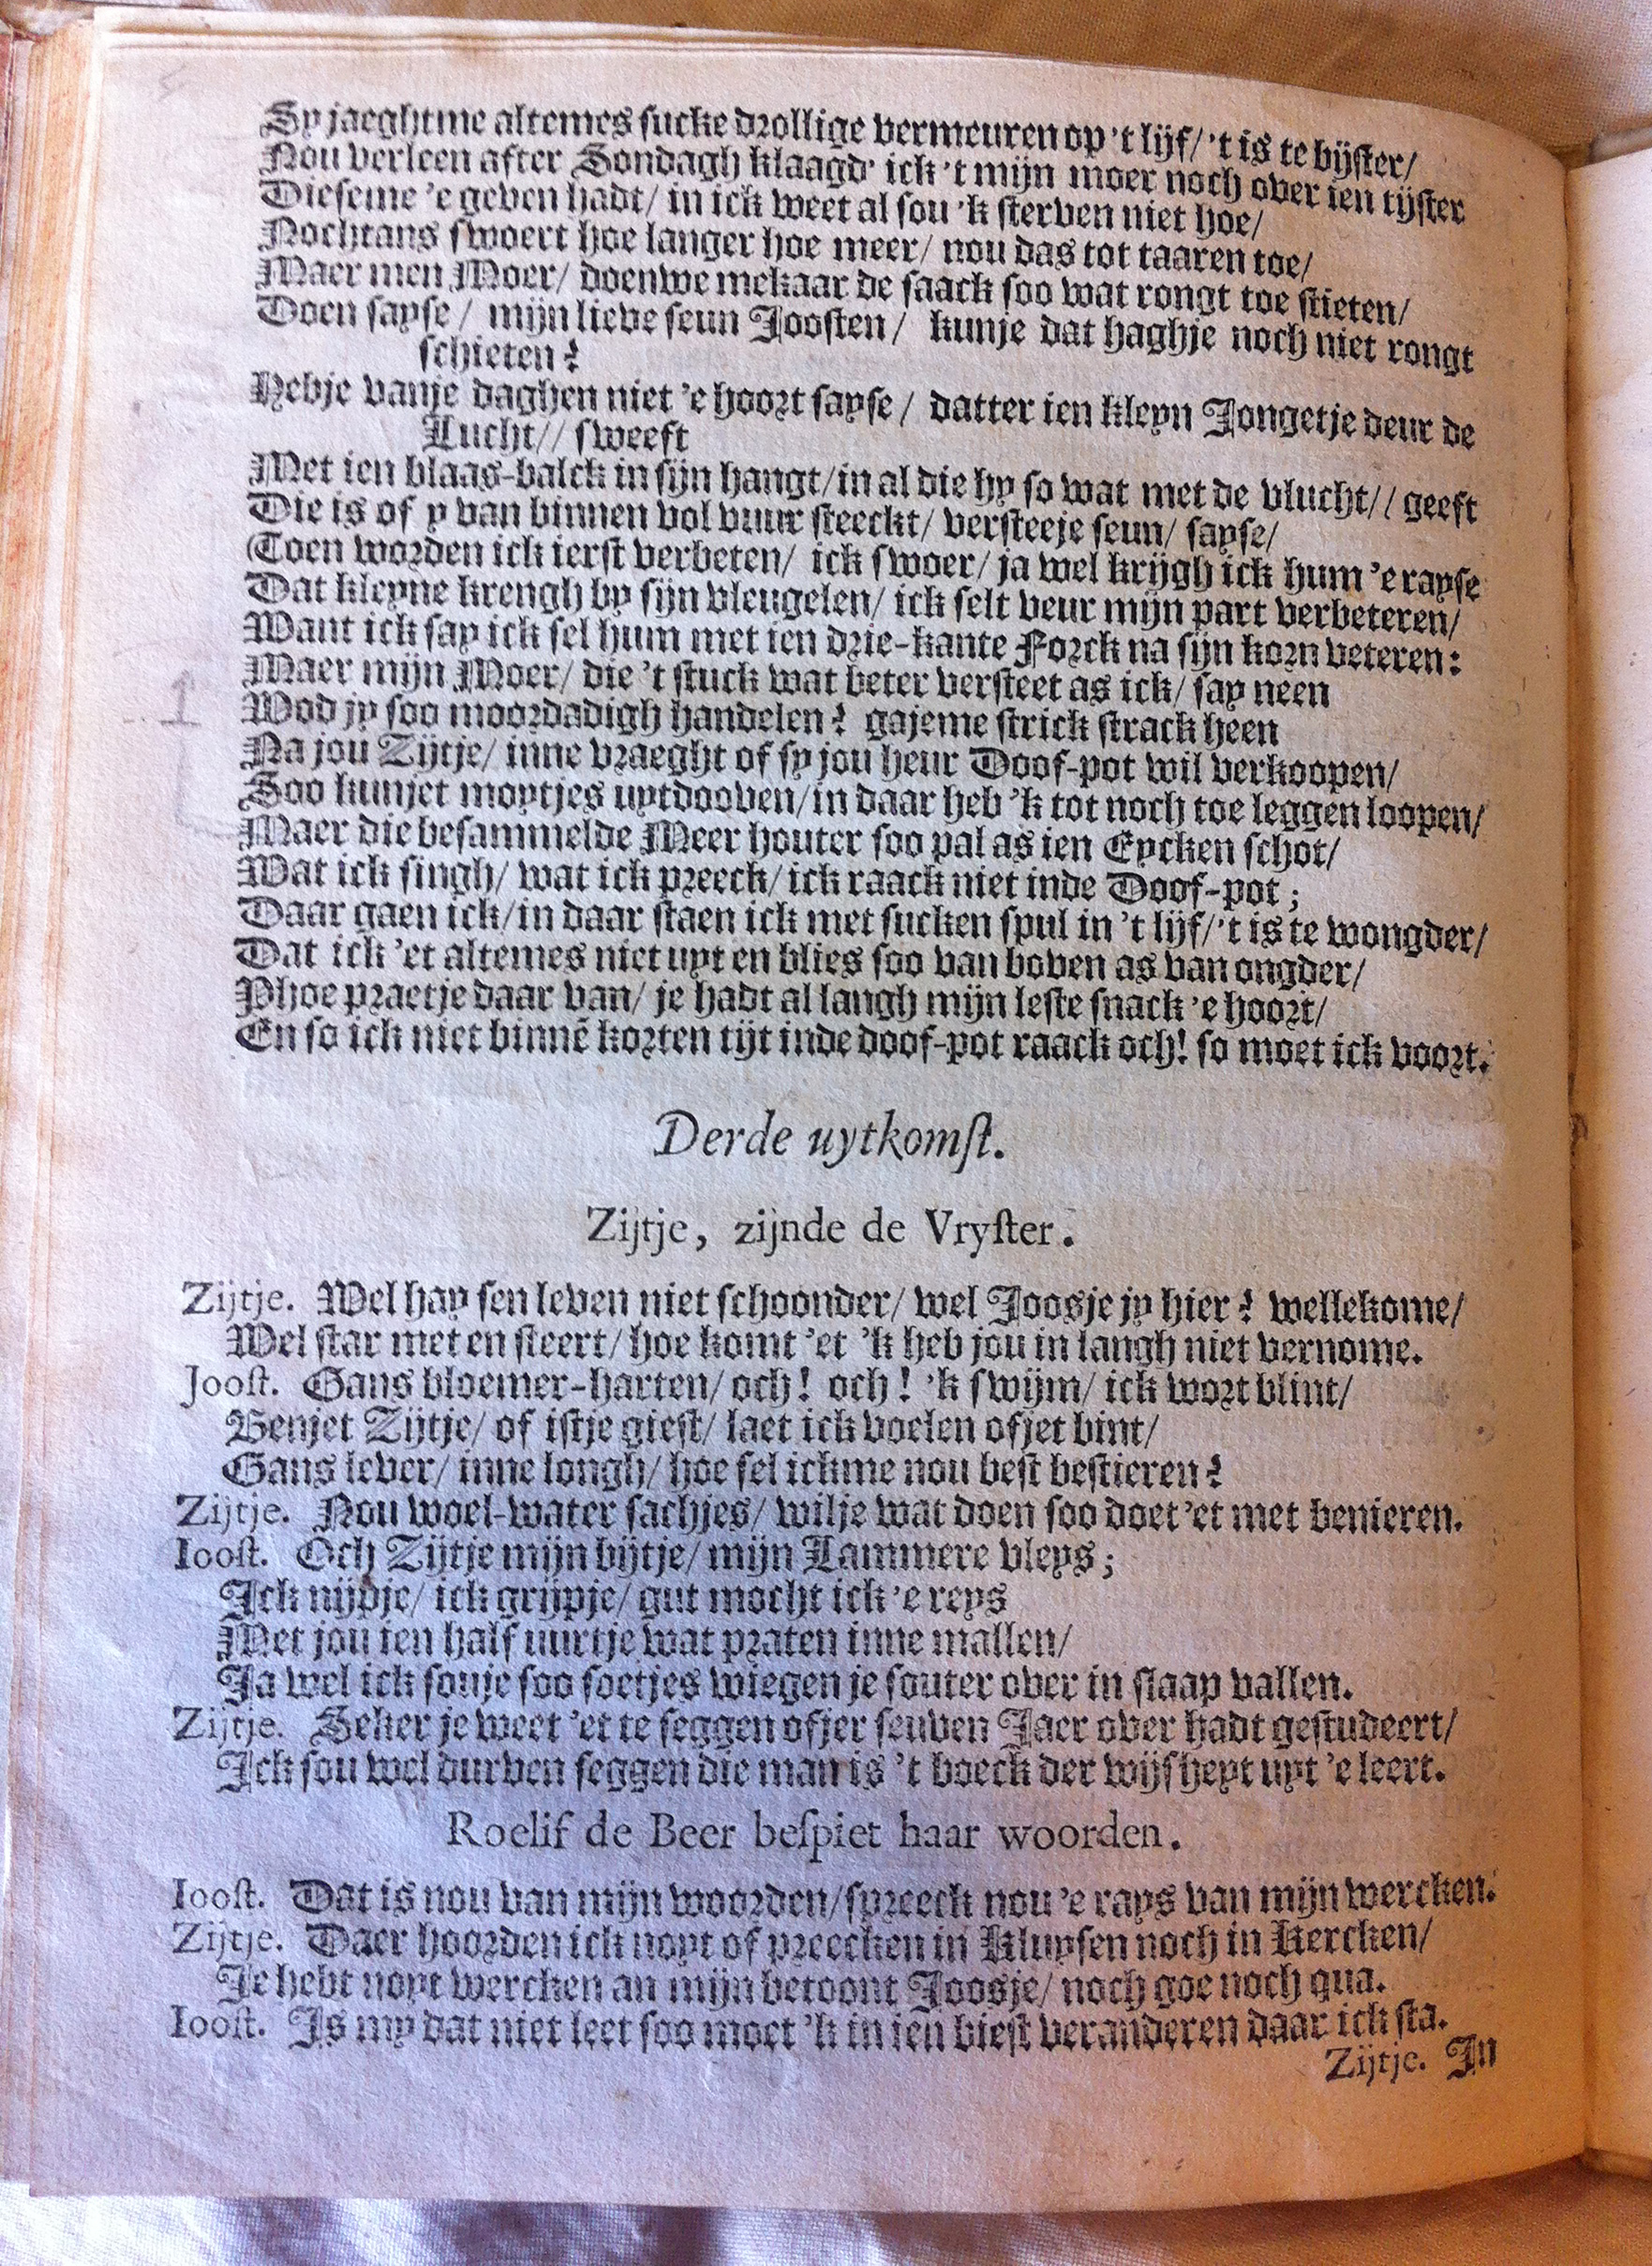 Sy jaeghtme altemes sucke drollige vermeuren op 't lijf/ 't is te bijster/
Nou verleen after Sondagh klaagd' ick 't mijn moer noch over ien tijster
Dieseme 'e geven hadt/ in ick weet al sou 'k sterven niet hoe/
Nochtans swoert hoe langer hoe meer/ nou das tot taaren toe/
Maer men Moer/ doenwe mekaar de saack soo wat rongt toe stieten/
Doen sayse/ mijn lieve seun Joosten/ kunje dat haghje noch niet rongt
schieten?
Hebje vanje daghen niet 'e hoort sayse/ datter ien kleyn Jongetje deur de
Lucht// sweeft
Met ien blaas-balck in sijn hangt/ in al die hy so wat met de vlucht// geeft
Die is of y van binnen vol vuur steeckt/ versteeje seun/ sayse/
(Toen worden ick ierst verbeten/ ick swoer/ ja wel krijgh ick hum 'e rayse
Dat kleyne krengh by sijn vleugelen/ ick selt veur mijn part verbeteren/
Want ick say ick sel hum met ien drie-kante Forck na sijn korn veteren:
Maer mijn Moer/ die 't stuck wat beter versteet as ick/ say neen
Wod jy soo moordadigh handelen? gajeme strick strack heen
Na jou Zijtje/ inne vraeght of sy jou heur Doof-pot wil verkoopen/
Soo kunjet moytjes uytdooven/ in daar heb 'k tot noch toe leggen loopen/
Maer die besammelde Meer houter soo pal as ien Eycken schot/
Wat ick singh/ wat ick preeck/ ick raack niet inde Doof-pot;
Daar gaen ick/ in daar staen ick met sucken spul in 't lijf/ 't is te wongder/
Dat ick 'et altemes niet uyt en blies soo van boven as van ongder/
Phoe praetje daar van/ je hadt al langh mijn leste snack 'e hoort/
En so ick niet binnē korten tijt inde doof-pot raack och! so moet ick voort.
Derde uytkomst.
Zijtje, zijnde de Vryster.
Zijtje. Wel hay sen leven niet schoonder/ wel Joosje jy hier? wellekome/
Wel star met en steert/ hoe komt 'et 'k heb jou in langh niet vernome.
Joost. Gans bloemer-harten/ och! och! 'k swijm/ ick wort blint/
Benjet Zijtje/ of istje giest/ laet ick voelen ofjet bint/
Gans lever/ inne longh/ hoe sel ickme nou best bestieren?
Zijtje. Nou woel-water sachjes/ wilje wat doen soo doet 'et met benieren.
Ioost. Och Zijtje mijn bijtje/ mijn Lammere vleys;
Ick nijpje/ ick grijpje/ gut mocht ick 'e reys
Met jou ien half uurtje wat praten inne mallen/
Ja wel ick souje soo soetjes wiegen je souter over in slaap vallen.
Zijtje. Seker je weet 'et te seggen ofjer seuven Jaer over hadt gestudeert/
Ick sou wel durven seggen die man is 't boeck der wijsheyt uyt 'e leert.
Roelif de Beer bespiet haar woorden.
Ioost. Dat is nou van mijn woorden/ spreeck nou 'e rays van mijn wercken.
Zijtje. Daer hoorden ick noyt of preecken in Kluysen noch in Kercken/
Je hebt noyt wercken an mijn betoont Joosje/ noch goe noch qua.
Ioost. Is my dat niet leet soo moet 'k in ien biest veranderen daar ick sta.
Zijtje. In